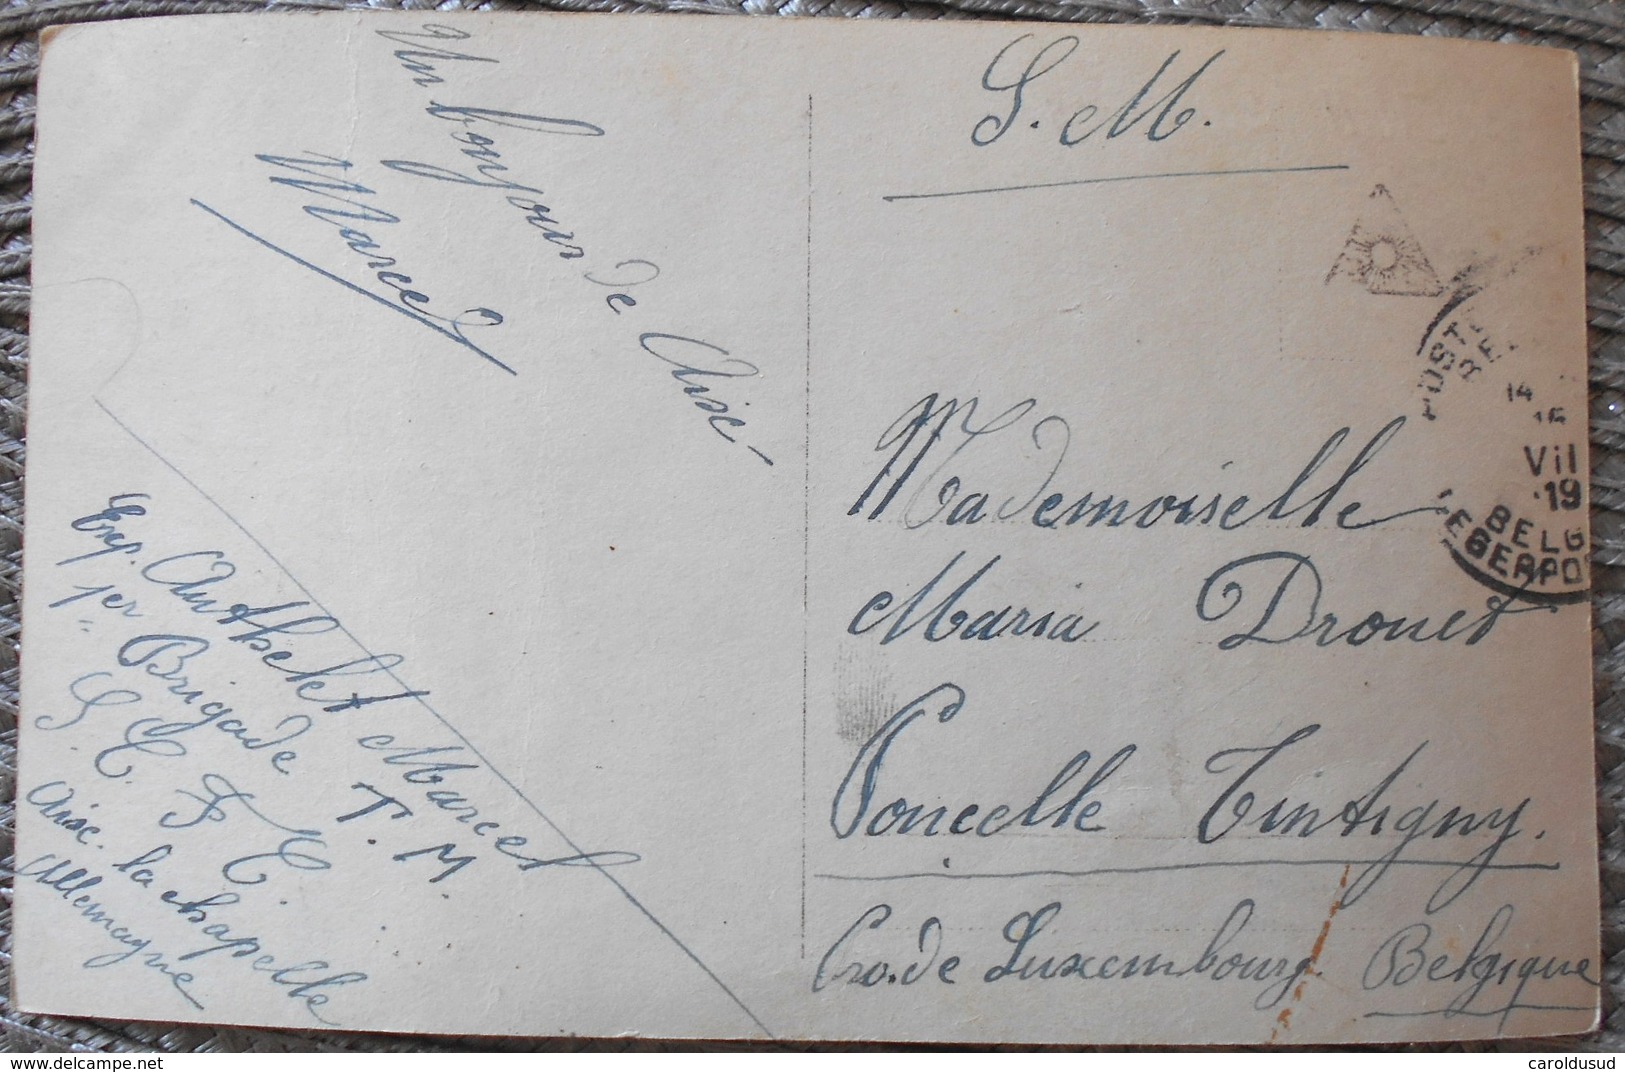 Un bonjour de Aix
Marcel
Exp. Authelet Marcel
1er Brigade T. M.
S. C. F. C.
Aix. la chapelle
Allemagne
S. M.
Mademoiselle
Maria Drouet
Poncelle Tintigny.
Pro. de Luxembourg. Belgique
POST
BE
14
VII
19
BELG
EGERPO
caroldusud